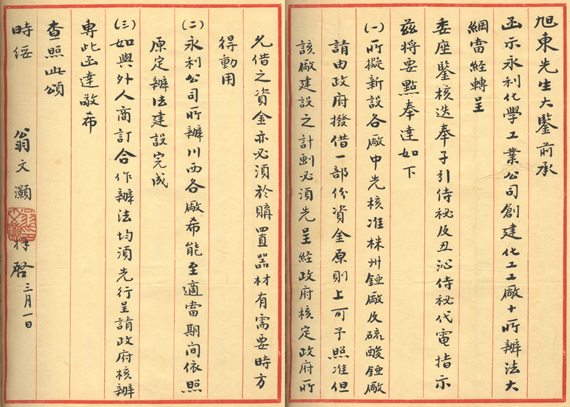 旭東先生大鑒前承
函示永利化學工業公司創建化工工廠十所辦法大
綱當經轉呈
委座鑒核迭奉子引侍秘及丑沁侍秘代電指示
茲將要點奉達如下
㈠所擬新設各廠中先核准株州錏廠及硫酸錏廠
請由政府撥借一部份資金原則上可予照准但
該廠建設之計劃必須先呈經政府核定政府所
允借之資金亦必須於購置器材有需要時方
得動用
㈡永利公司所辦川西各廠希能至適當期間依照
原定辦法建設完成
㈢如與外人商訂合作辦法均須先行呈請政府核辦
專此函達敬希
查照此頌
時綏
翁文灝 拜啓 三月一日